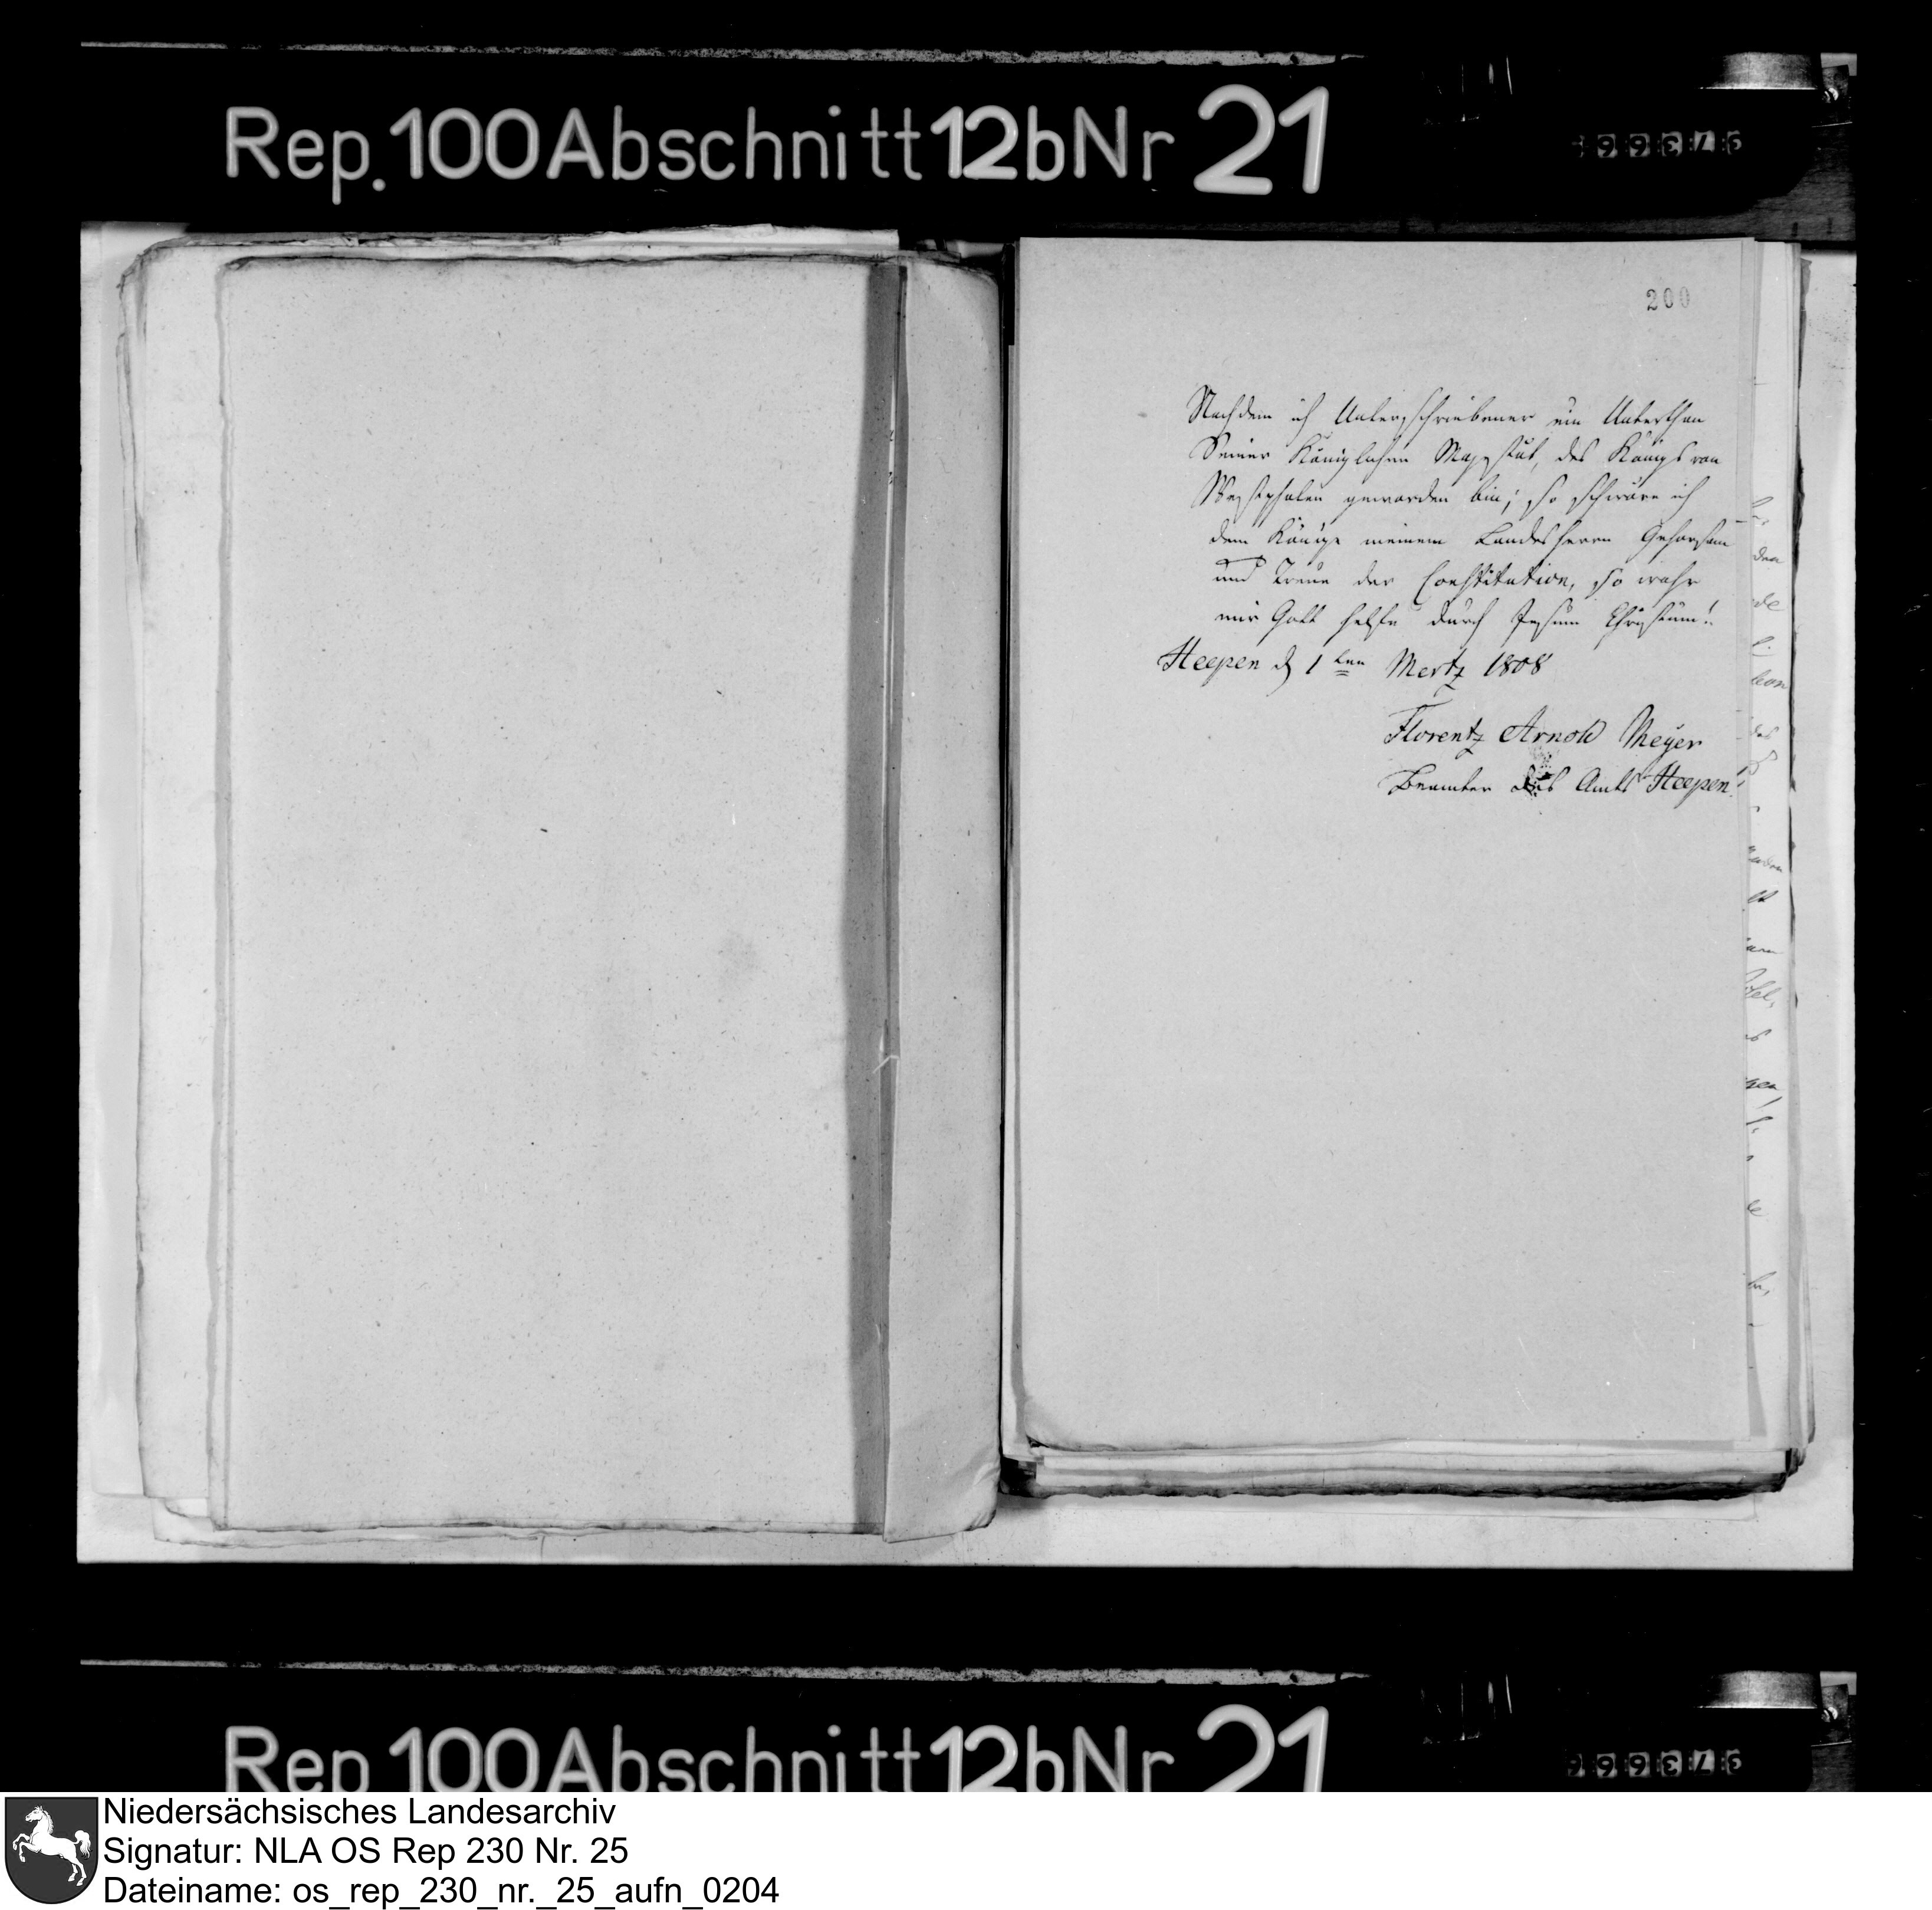 Rep. 100 Abschnitt 12b Nr 21
37366
200
Nachdem ich Unterschriebener ein Unterthan
Seiner Königlichen Majestät, des Königs von
Westphalen geworden bin; so schwöre ich
dem Könige meinem Landesherrn Gehorsam
und Treue der Constitution, so wahr
mir Gott helfe durch Jesum Christum!
Heepen d 1ten Mertz 1808
Florentz Arnold Meyer
Beamter des Amts Heepen
Rep 100 Abschnitt 12b Nr 21
37366
Niedersächsisches Landesarchiv
Signatur: NLA OS Rep 230 Nr. 25
Dateiname: os_rep_230_nr._25_aufn_0204